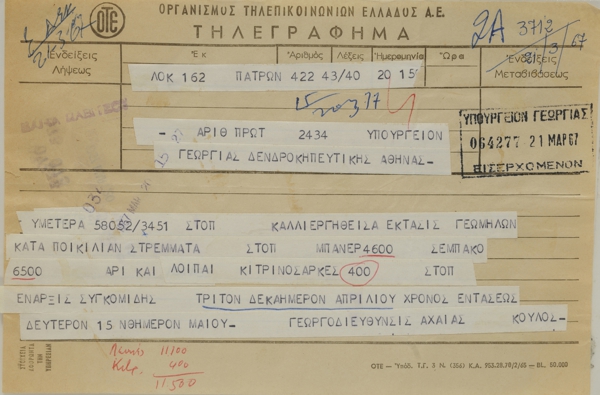 ΟΡΓΑΝΙΣΜΟΣ ΤΗΛΕΠΙΚΟΙΝΩΝΙΩΝ ΕΛΛΑΔΟΣ Α.Ε.
ΟΤΕ
ΤΗΛΕΓΡΑΦΗΜΑ
2Α 3712
21/3/67
Ἐνδείξεις Λήψεως
Ἐκ Ἀριθμὸς Λέξεις Ἡμερομηνία Ὥρα
Ἐνδείξεις Μεταβιβάσεως
ΛΟΚ 162 ΠΑΤΡΩΝ 422 43/40 20 15
- ΑΡΙΘ ΠΡΩΤ 2434 ΥΠΟΥΡΓΕΙΟΝ
ΓΕΩΡΓΙΑΣ ΔΕΝΔΡΟΚΗΠΕΥΤΙΚΗΣ ΑΘΗΝΑΣ-
ΥΠΟΥΡΓΕΙΟΝ ΓΕΩΡΓΙΑΣ
064277 21 ΜΑΡ 67
ΕΙΣΕΡΧΟΜΕΝΟΝ
ΥΜΕΤΕΡΑ 58052/3451 ΣΤΟΠ ΚΑΛΛΙΕΡΓΗΘΕΙΣΑ ΕΚΤΑΣΙΣ ΓΕΩΜΗΛΩΝ
ΚΑΤΑ ΠΟΙΚΙΛΙΑΝ ΣΤΡΕΜΜΑΤΑ ΣΤΟΠ ΜΠΑΝΕΡ 4600 ΣΕΜΠΑΚΟ
6500 ΑΡΙ ΚΑΙ ΛΟΙΠΑΙ ΚΙΤΡΙΝΟΣΑΡΚΕΣ 400 ΣΤΟΠ
ΕΝΑΡΞΙΣ ΣΥΓΚΟΜΙΔΗΣ ΤΡΙΤΟΝ ΔΕΚΑΗΜΕΡΟΝ ΑΠΡΙΛΙΟΥ ΧΡΟΝΟΣ ΕΝΤΑΣΕΩΣ
ΔΕΥΤΕΡΟΝ 15 ΝΘΗΜΕΡΟΝ ΜΑΙΟΥ- ΓΕΩΡΓΟΔΙΕΥΘΥΝΣΙΣ ΑΧΑΙΑΣ ΚΟΥΛΟΣ-
11100
400
11500
ΟΤΕ - Ὑπόδ. Τ.Γ. 3 Ν (356) Κ.Α. 953.28.70/2/65 - BL. 50.000